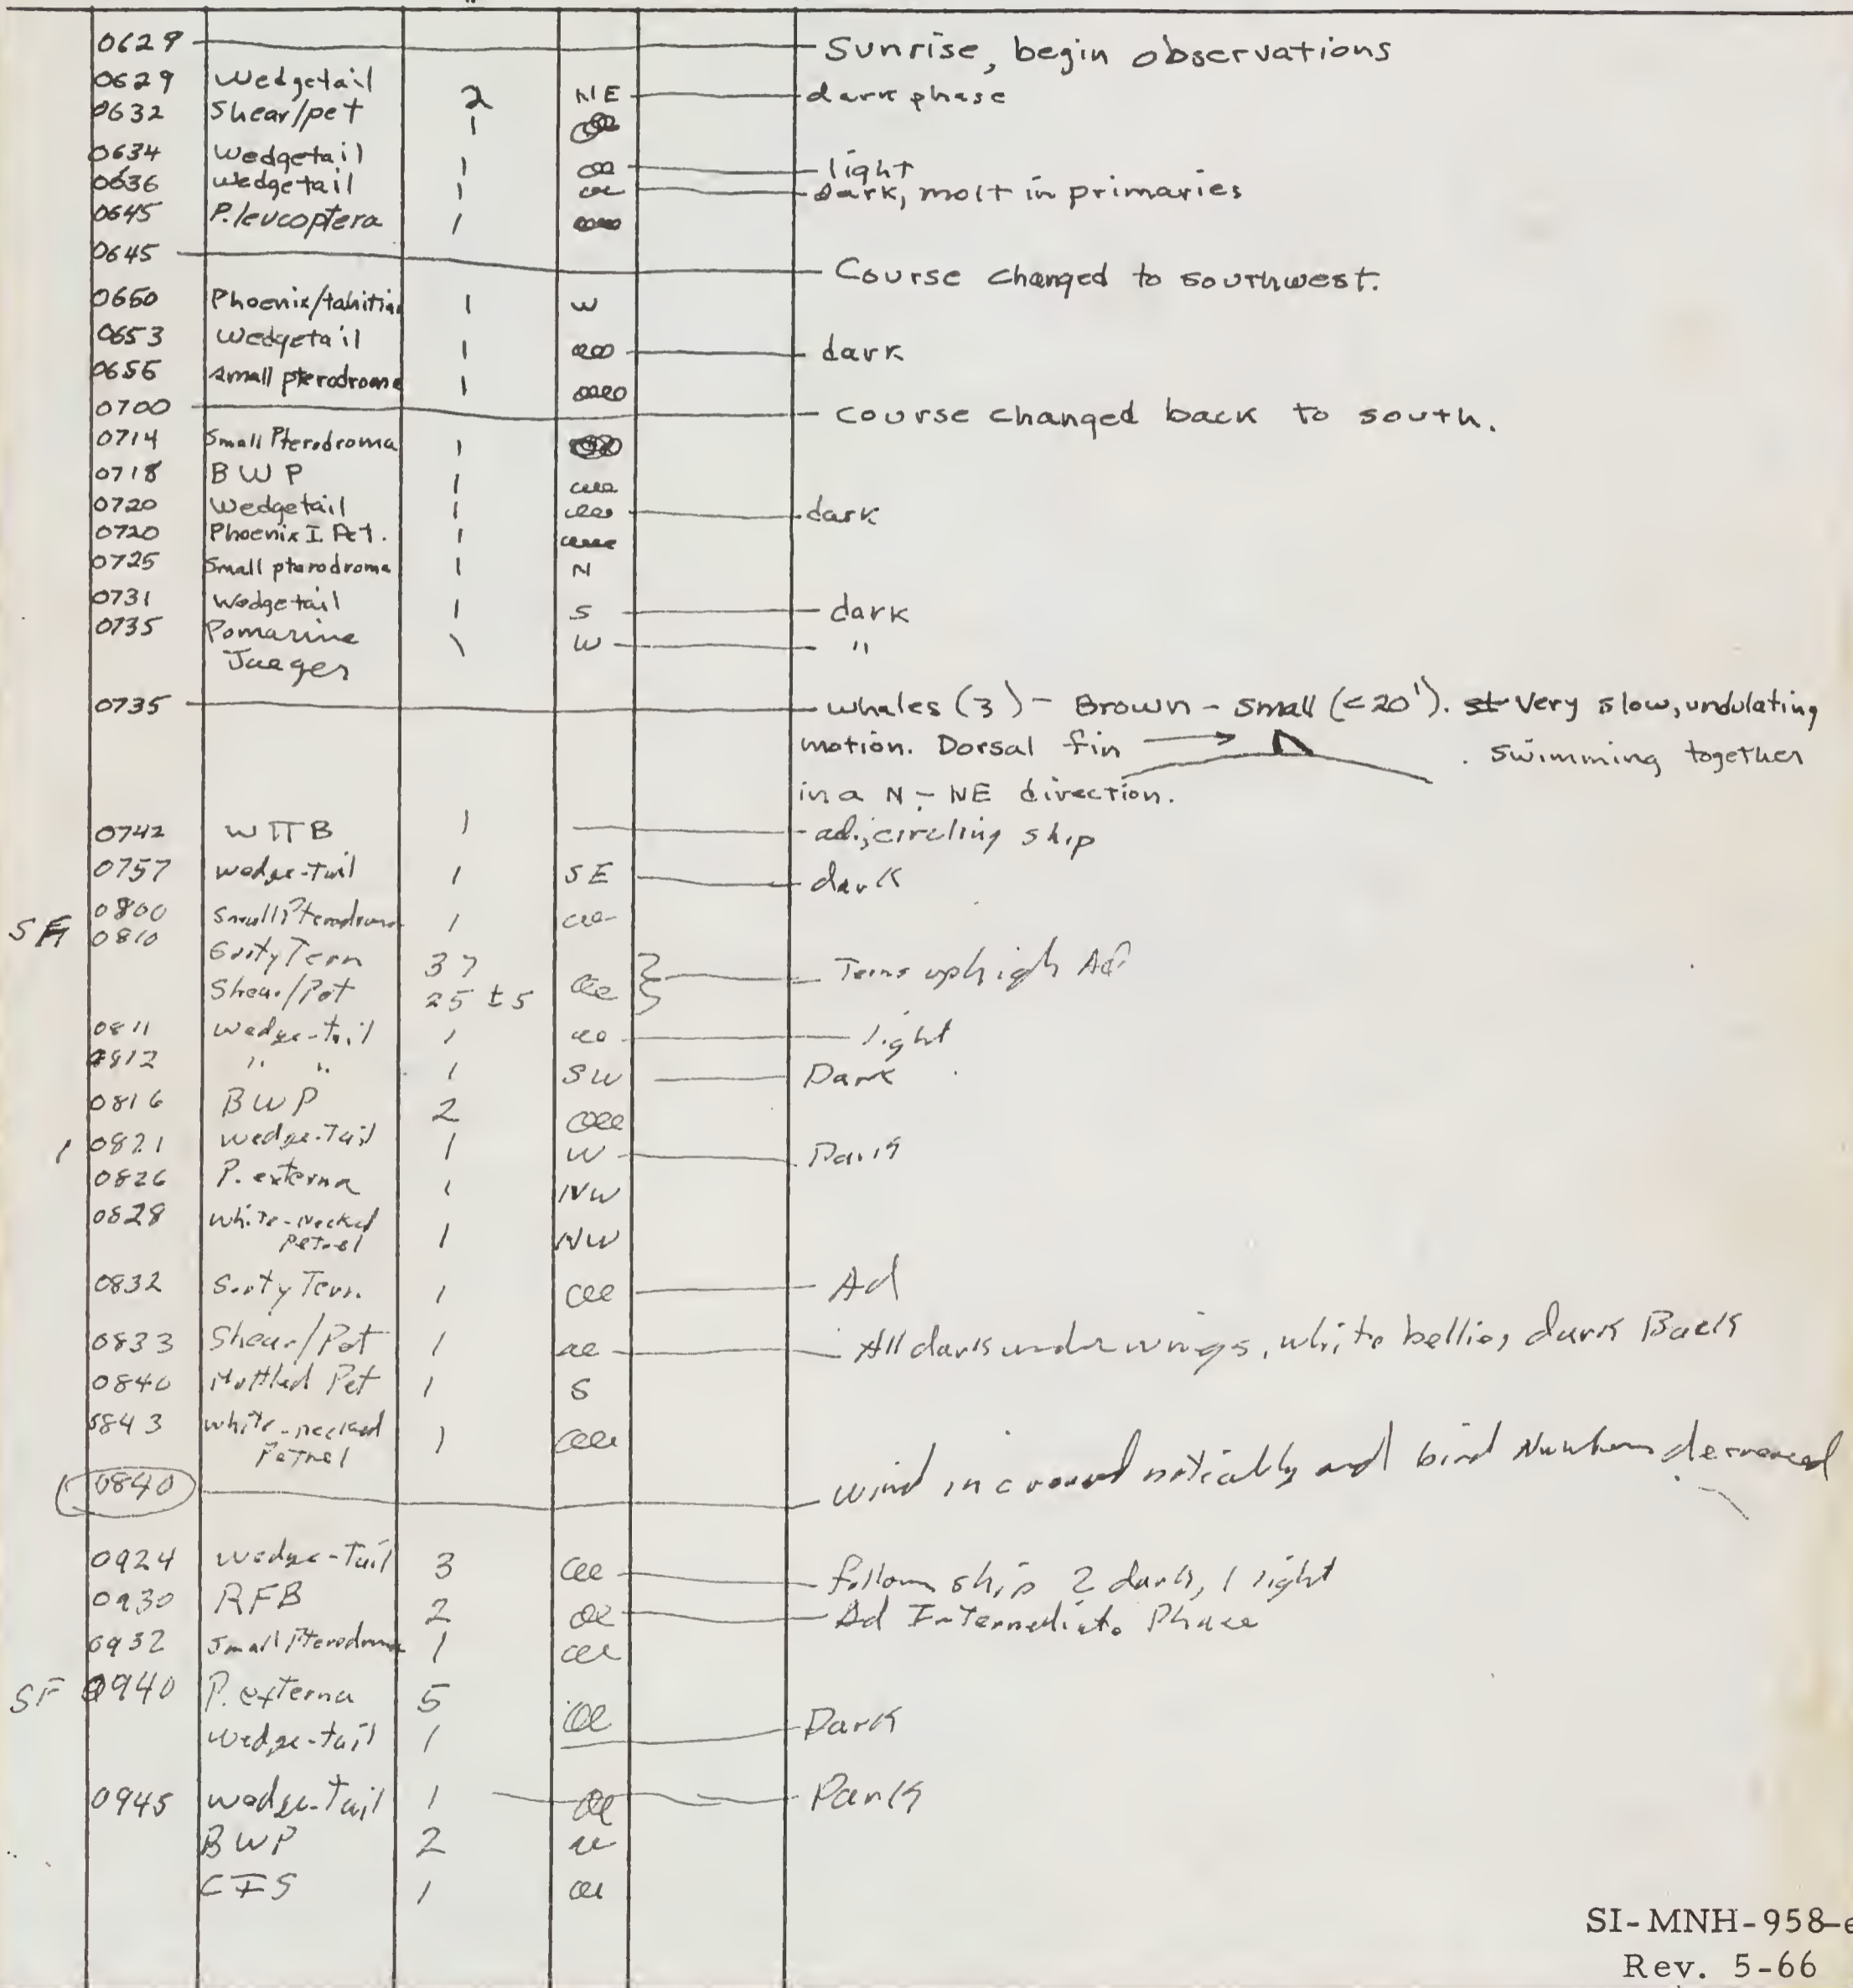 0629 Sunrise, begin observations
0629 Wedgetail 2 NE dark phase
0632 Shear/pet 1
0634 Wedgetail 1 light
0636 Wedgetail 1 dark, molt in primaries
0645 P. leucoptera 1
0645 Course changed to southwest.
0650 Phoenix/tahitian 1 W
0653 Wedgetail 1 dark
0656 small pterodroma 1
0700 course changed back to south.
0714 Small Pterodroma 1
0718 BWP 1
0720 Wedgetail 1 dark
0720 Phoenix I. Pet. 1
0725 Small pterodroma 1 N
0731 Wedgetail 1 S dark
0735 Pomarine 1 W "
Jaeger
0735 whales (3) - Brown - small (<20'). Very slow, undulating
motion. Dorsal fin . swimming together
in a N - NE direction.
0742 WTTB 1 ad., circling ship
0757 wedge-tail 1 SE dark
0800 Small Pterodroma 1
SF 0810 Sooty Tern 37 Terns up high Ad
Shear/Pet 25 ±5
0811 wedge-tail 1 light
0812 " " 1 SW Dark
0816 BWP 2
0821 wedge-tail 1 W Dark
0826 P. externa 1 NW
0828 white-necked
Petrel 1 NW
0832 Sooty Tern 1 Ad
0833 Shear/Pet 1 All dark underwings, white bellies, dark Back
0840 Mottled Pet 1 S
0843 white-necked
Petrel 1
0840 wind increased noticably and bird Numbers decreased
0924 wedge-Tail 3 follow ship 2 dark, 1 light
0930 RFB 2 Ad Intermediate Phase
0932 small Pterodroma 1
SF 0940 P. externa 5
wedge-tail 1 Dark
0945 wedge-Tail 1 Dark
BWP 2
CIS 1
SI-MNH-958-e
Rev. 5-66